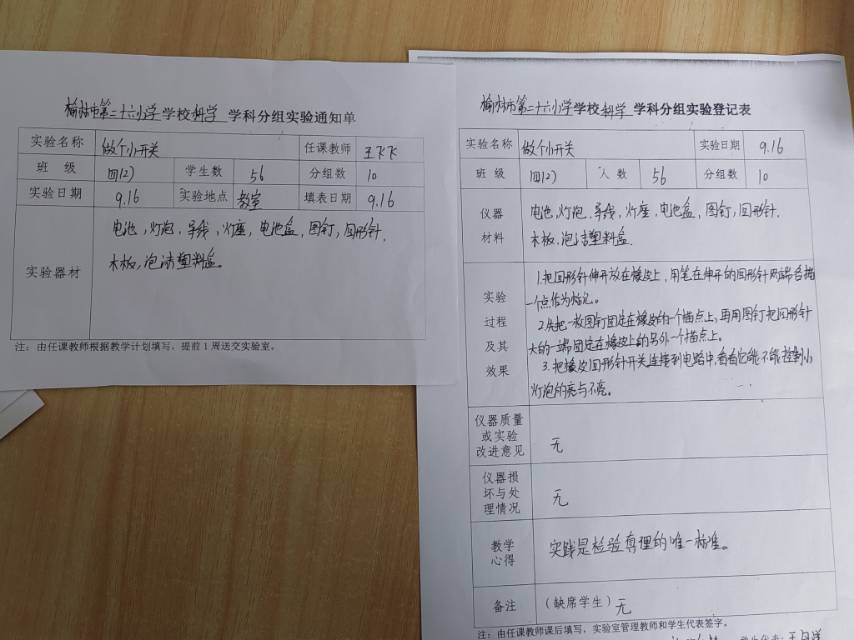 榆林市第二十六小学学校科学 学科分组实验通知单
实验名称 做个小开关 任课教师 王飞飞
班 级 四(2) 学生数 56 分组数 10
实验日期 9.16 实验地点 教室 填表日期 9.16
电池,灯泡,导线,灯座,电池盒,图钉,回形针,
实验器材 木板,泡沫塑料盒。
注:由任课教师根据教学计划填写,提前1周送交实验室。
榆林市第二十六小学学校科学 学科分组实验登记表
实验名称 做个小开关 实验日期 9.16
班 级 四(2) 人 数 56 分组数 10
仪器 电池,灯泡,导线,灯座,电池盒,图钉,回形针,
材料 木板,泡沫塑料盒
1.把回形针伸开放在橡皮上,用笔在伸开的回形针两端各描
实验 一个点作为标记。
过程 2.先把一枚图钉固定在橡皮的一个描点上,再用图钉把回形针
及其 大的一端固定在橡皮上的另外一个描点上。
效果 3.把橡皮回形针开关连接到电路中,看看它能不能控制小
灯泡的亮与不亮。
仪器质量
或实验
改进意见 无
仪器损
坏与处
理情况 无
教学
心得 实践是检验真理的唯一标准。
备注 (缺席学生) 无
注:由任课教师课后填写,实验室管理教师和学生代表签字。